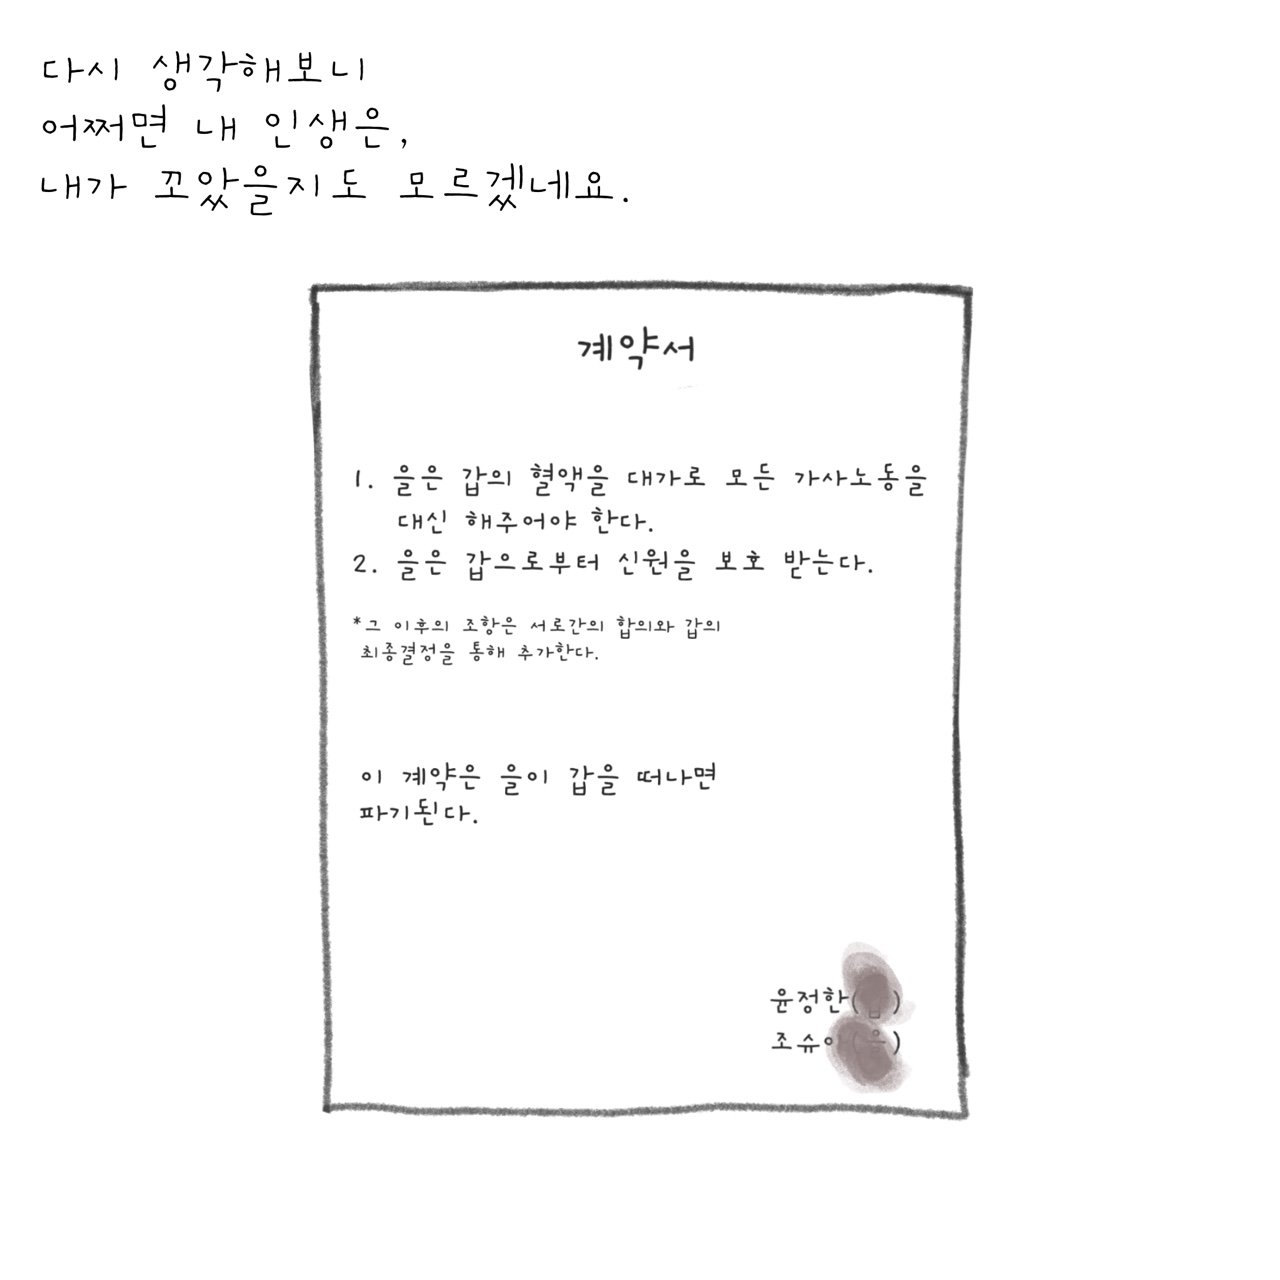 다시 생각해보니
어쩌면 내 인생은,
내가 꼬았을지도 모르겠네요.
계약서
1. 을은 갑의 혈액을 대가로 모든 가사노동을
대신 해주어야 한다.
2. 을은 갑으로부터 신원을 보호 받는다.
*그 이후의 조항은 서로간의 합의와 갑의
최종결정을 통해 추가한다.
이 계약은 을이 갑을 떠나면
파기된다.
윤정한(갑)
조슈아(을)